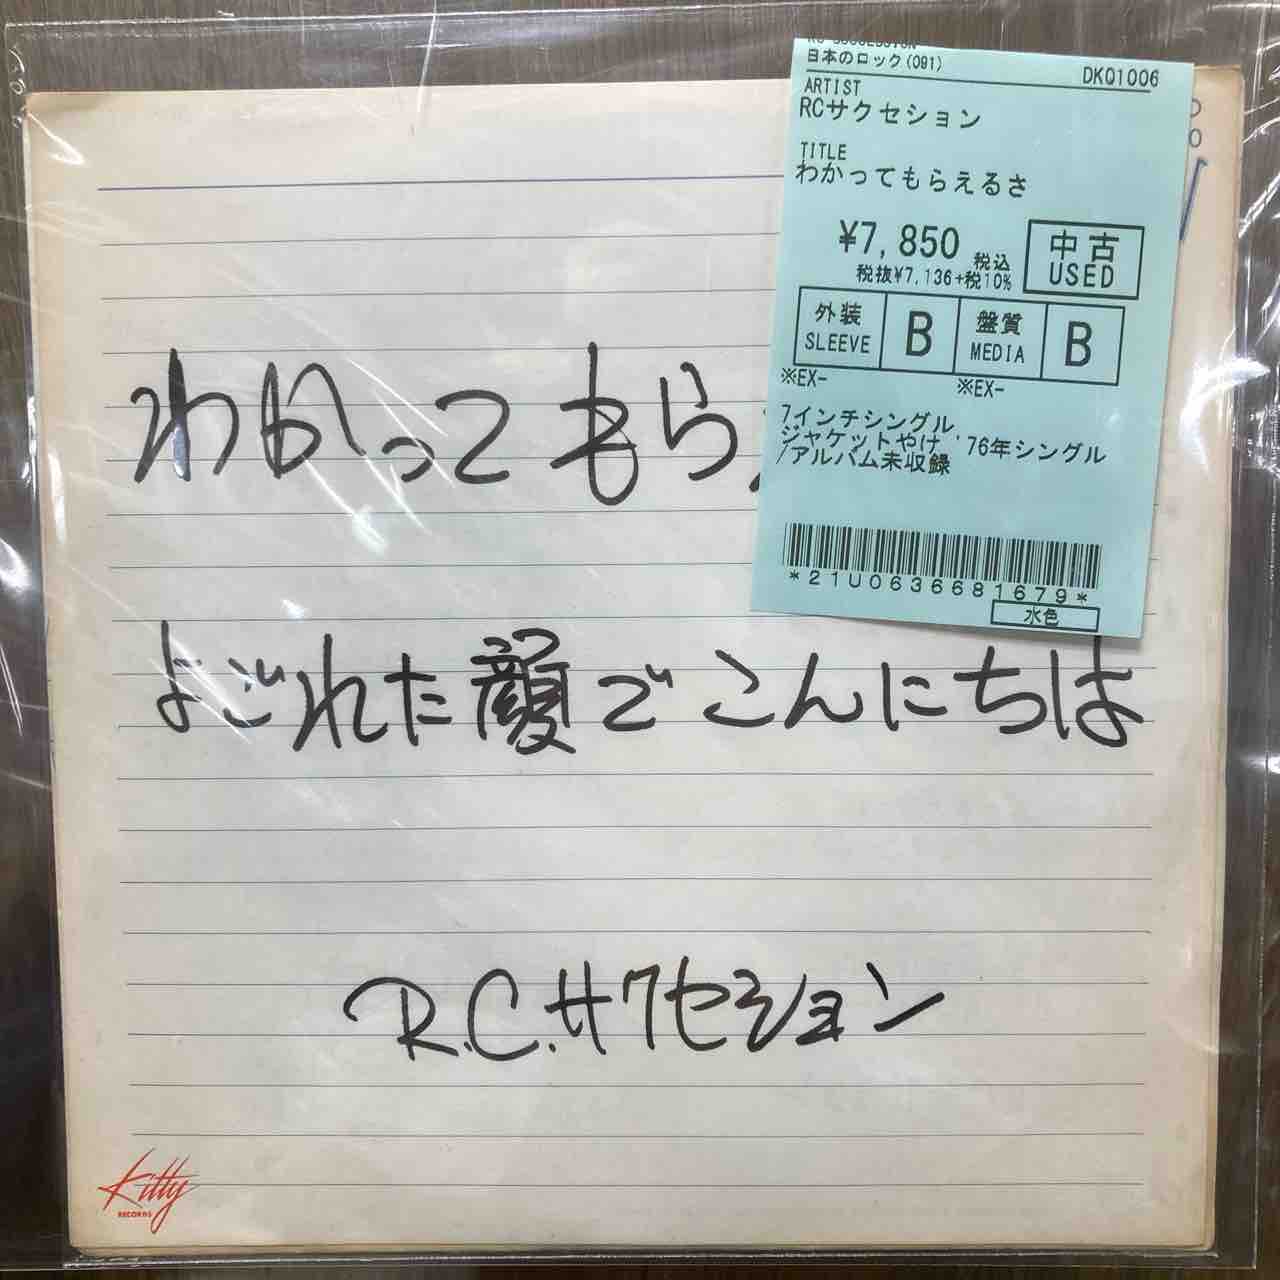 RC SUCCESSION
日本のロック(091) DKQ1006
ARTIST
RCサクセション
TITLE
わかってもらえるさ
¥7,850 税込
税抜¥7,136+税10%
中古
USED
外装
SLEEVE
B
盤質
MEDIA
B
※EX- ※EX-
7インチシングル
ジャケットやけ '76年シングル
/アルバム未収録
*21U0636681679*
水色
わかってもら
よごれた顔でこんにちは
R.C.サクセション
Kitty
RECORDS